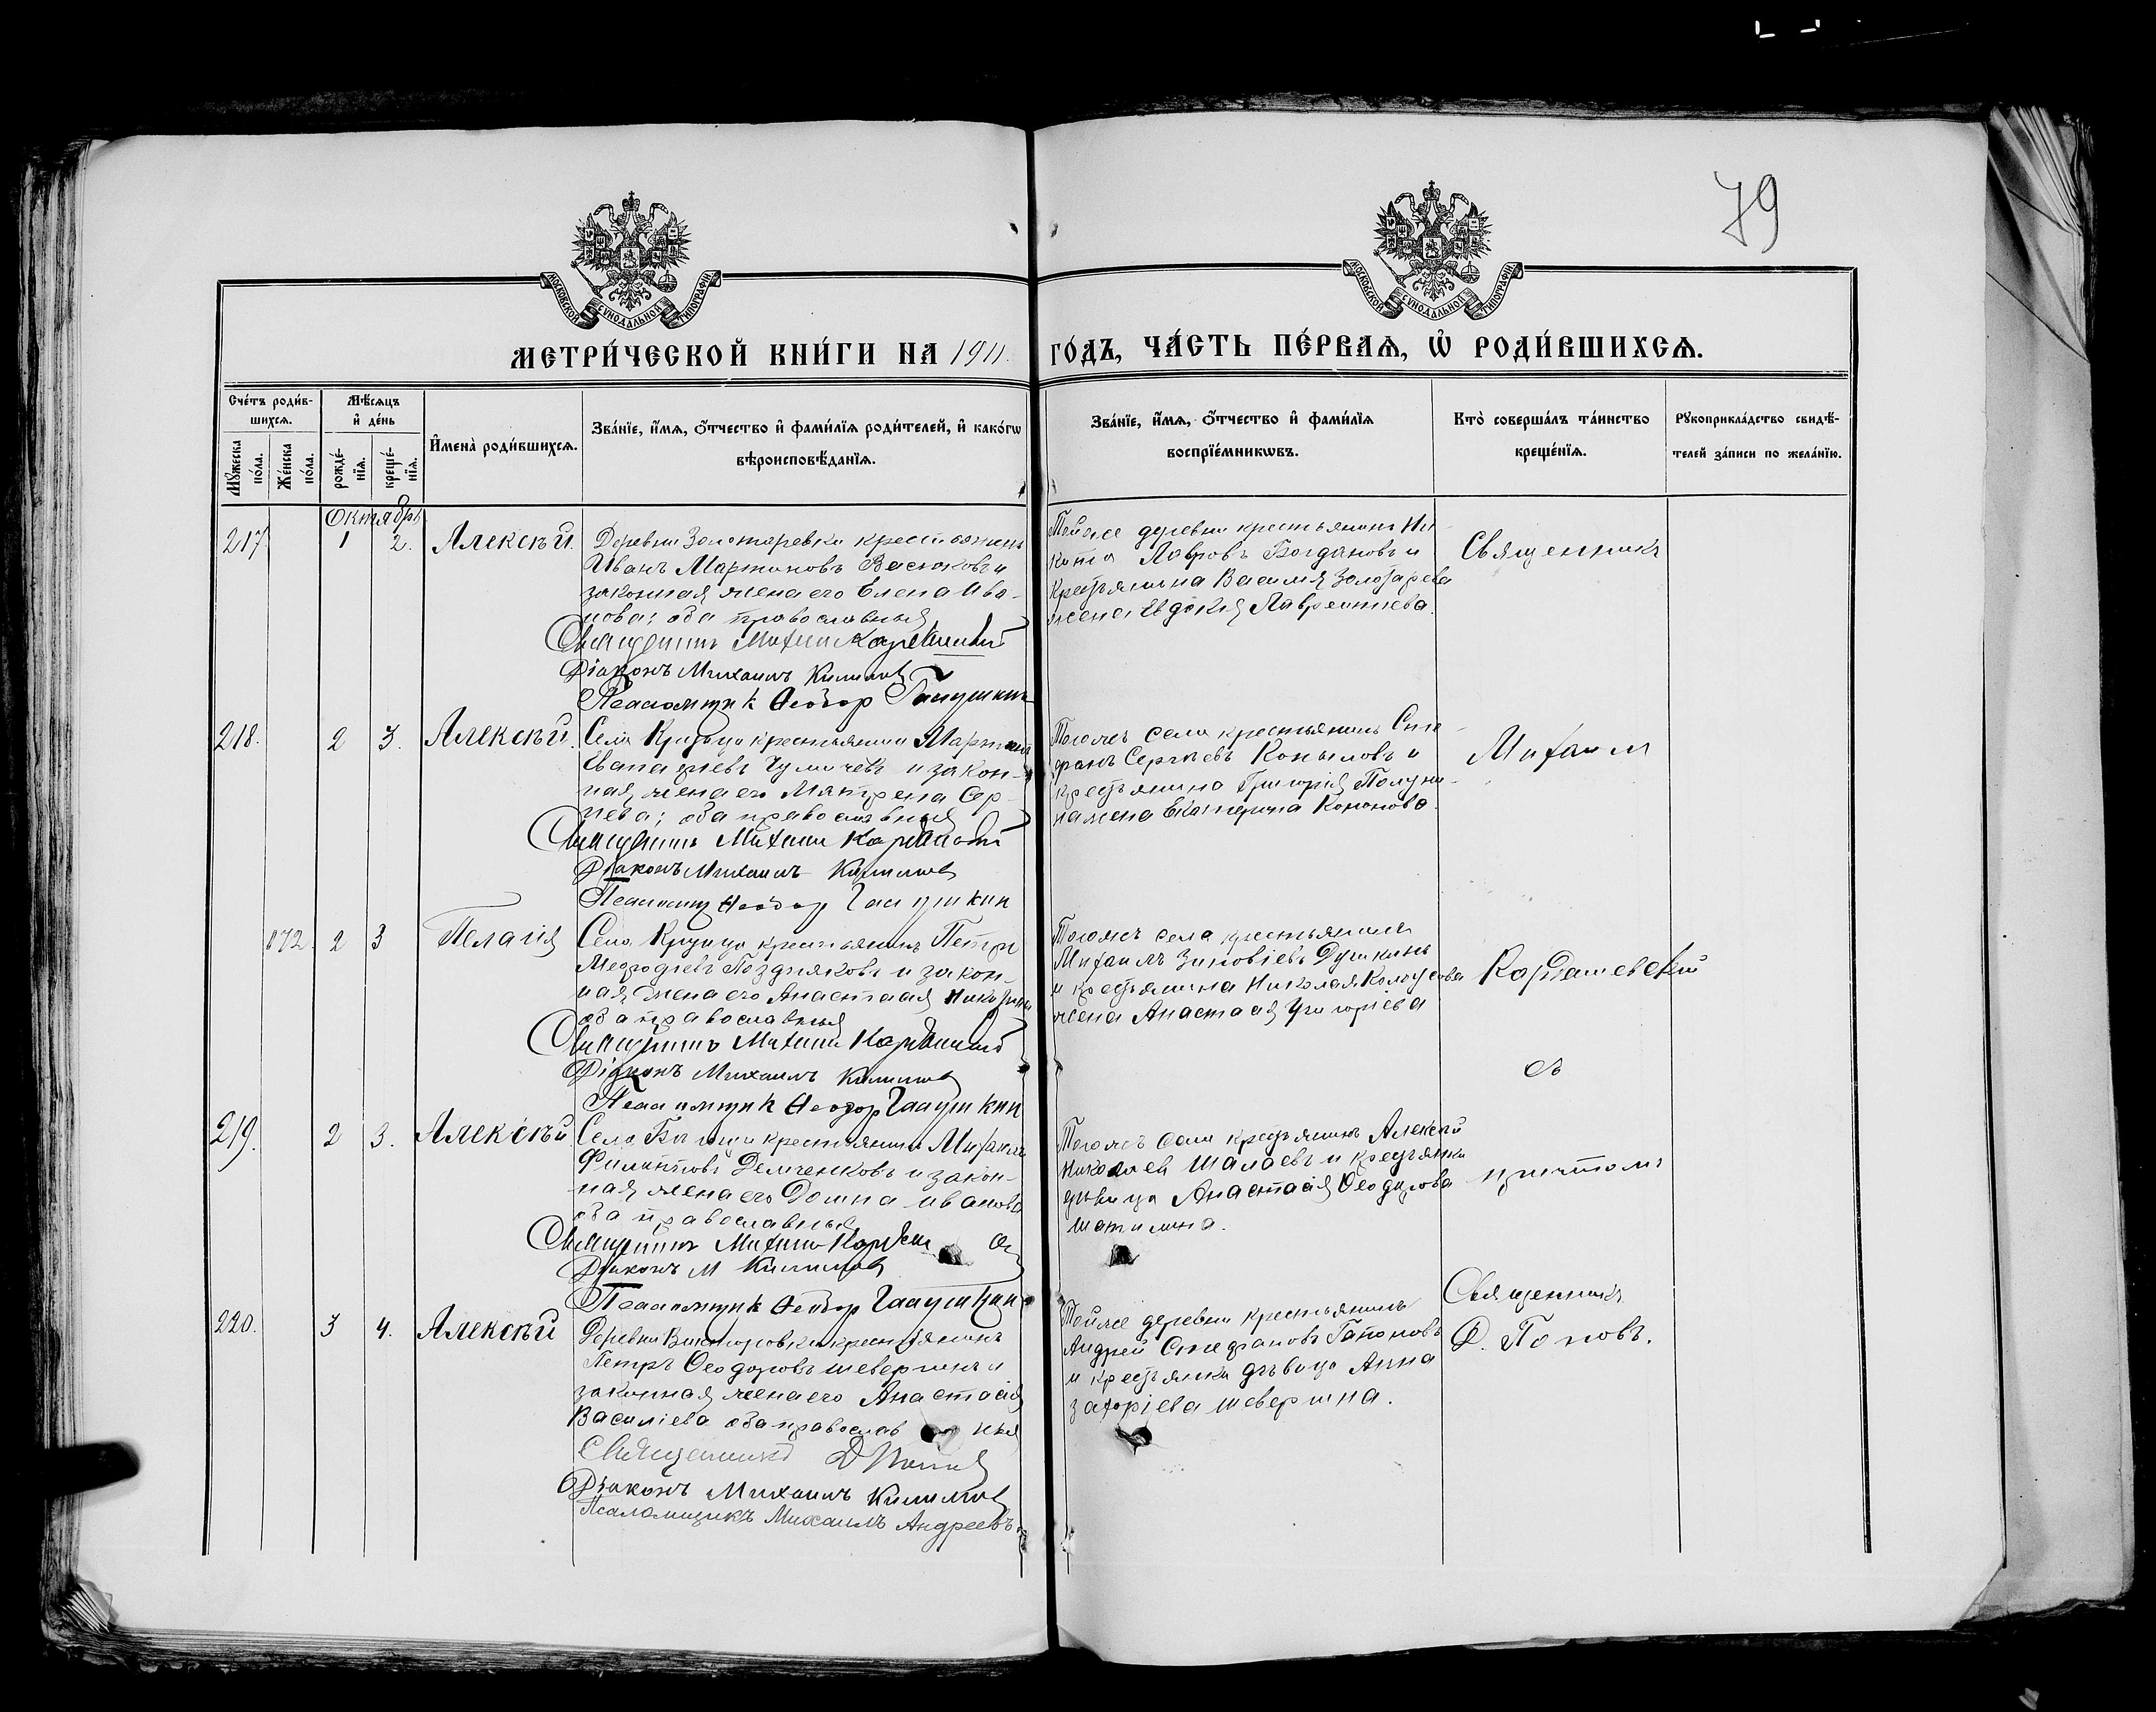 79
МОСКОВСКОЙ СѴНОДАЛЬНОЙ ТИПОГРАФІИ
МОСКОВСКОЙ СѴНОДАЛЬНОЙ ТИПОГРАФІИ
МЕТРИ́ЧЕСКОЙ КНИ́ГИ НА 1911 ГО́ДЪ, ЧА́СТЬ ПЕ́РВАѦ, Ѡ҆ РОДИ́ВШИХСѦ.
Сче́тъ роди́в-
шихсѧ.
Мꙋ́жеска по́ла.
Же́нска по́ла.
Мѣ́сѧцъ
и҆ де́нь
рожде́-
нїѧ.
креще́-
нїѧ.
И҆мена̀ роди́вшихсѧ.
Зва́нїе, и҆́мѧ, ѻ҆́тчество и҆ фами́лїѧ роди́телей, и҆ како́гѡ
вѣроисповѣ́данїѧ.
Зва́нїе, и҆́мѧ, ѻ҆́тчество и҆ фами́лїѧ
воспрїе́мникѡвъ.
Кто̀ соверша́лъ та́инство
креще́нїѧ.
Рꙋкоприкла́дство свидѣ́-
телей за́писи по жела́нїю.
Октябрь
217 1 2. Алексѣй.
Деревни Золотаревки крестьянинъ
Иванъ Мартиновъ Васюковъ и
законная жена его Елена Ива-
нова; оба православныя
Священникъ Михаилъ Кардашевскій
Діаконъ Михаилъ Килимов
Псаломщик Феодор Гааушкин
Тойже деревни крестьянинъ Ни-
кита Лавровъ Богдановъ и
крестьянина Василія Золотарева
жена Евдокія Лаврентiева.
Священникъ
218. 2 3. Алексѣй.
Села Крупца крестьянинъ Мартинъ
и закон-
ная жена его Матрена Сер-
оба православныя
Священникъ Михаилъ Кардашевскій
Діаконъ Михаилъ Килимов
Псаломщик Феодор Гааушкин
Тогожъ села крестьянинъ Сте-
фанъ Сергѣевъ Копыловъ и
крестьянина Григорія
жена Екатерина Кононова.
Михаил
172. 2 3 Пелагія
Села Крупца крестьянинъ Петръ
Меѳодіевъ Поздняковъ и закон-
ная жена его Анастасія
оба православныя
Священникъ Михаилъ Кардашевскій
Діаконъ Михаилъ Килимов
Псаломщик Феодор Гааушкин
Тогожъ села крестьянинъ
Михаилъ Зиновіевъ Душкинъ
и крестьянина Николая
жена Анастасія Григоріева
Кардашевскій
съ
219. 2 3. Алексѣй.
Села крестьянинъ Михаилъ
Филиповъ Демченковъ и закон-
ная жена его Домна Иванова
оба православныя
Священникъ Михаилъ
Діаконъ М Килимов
Псаломщик Феодор Гааушкин
Тогожъ села крестьянинъ Алексѣй
Николаевъ Шалаевъ и крестьянка
дѣвица Анастасія Ѳеодорова
Шатилина.
причтомъ
220. 3 4. Алексѣй
Деревни Викторовки крестьянинъ
Петръ Ѳеодоровъ Шеверинъ и
законная жена его Анастасія
Василіева оба православныя
Священникъ Д Попов
Діаконъ Михаилъ Килимов
Псаломщикъ Михаилъ Андреевъ.
Тойже деревни крестьянинъ
Андрей Стефановъ Гапоновъ
и крестьянка дѣвица Анна
Захаріева Шеверина.
Священникъ
Д. Поповъ.